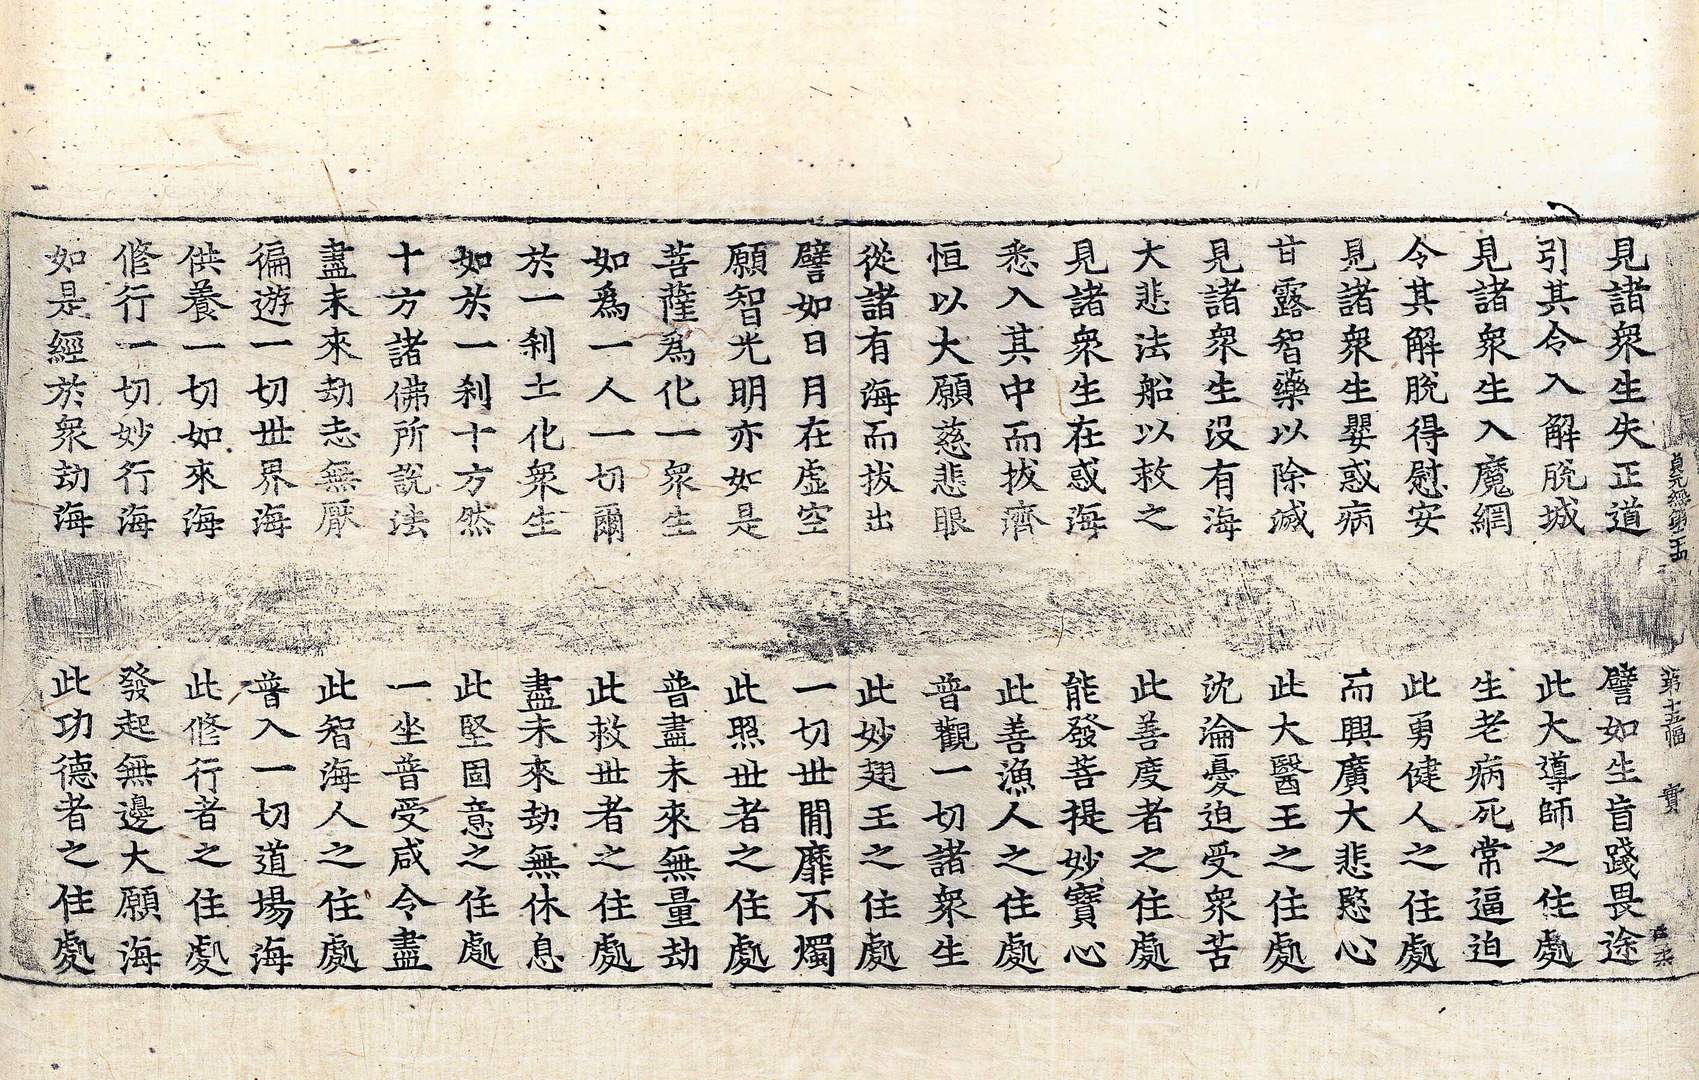 第十五幅
實
見諸衆生失正道 譬如生盲踐畏途
引其令入解脫城 此大導師之住處
見諸衆生入魔網 生老病死常逼迫
令其解脫得慰安 此勇健人之住處
見諸衆生嬰惑病 而興廣大悲愍心
甘露智藥以除滅 此大醫王之住處
見諸衆生沒有海 沈淪憂迫受衆苦
大悲法船以救之 此善度者之住處
見諸衆生在惑海 能發菩提妙寶心
悉入其中而拔濟 此善漁人之住處
恒以大願慈悲眼 普觀一切諸衆生
從諸有海而拔出 此妙翅王之住處
譬如日月在虛空 一切世間靡不燭
願智光明亦如是 此照世者之住處
菩薩爲化一衆生 普盡未來無量劫
如爲一人一切爾 此救世者之住處
於一刹土化衆生 盡未來劫無休息
如於一刹十方然 此堅固意之住處
十方諸佛所說法 一坐普受咸令盡
盡未來劫志無厭 此智海人之住處
徧遊一切世界海 普入一切道場海
供養一切如來海 此修行者之住處
修行一切妙行海 發起無邊大願海
如是經於衆劫海 此功德者之住處